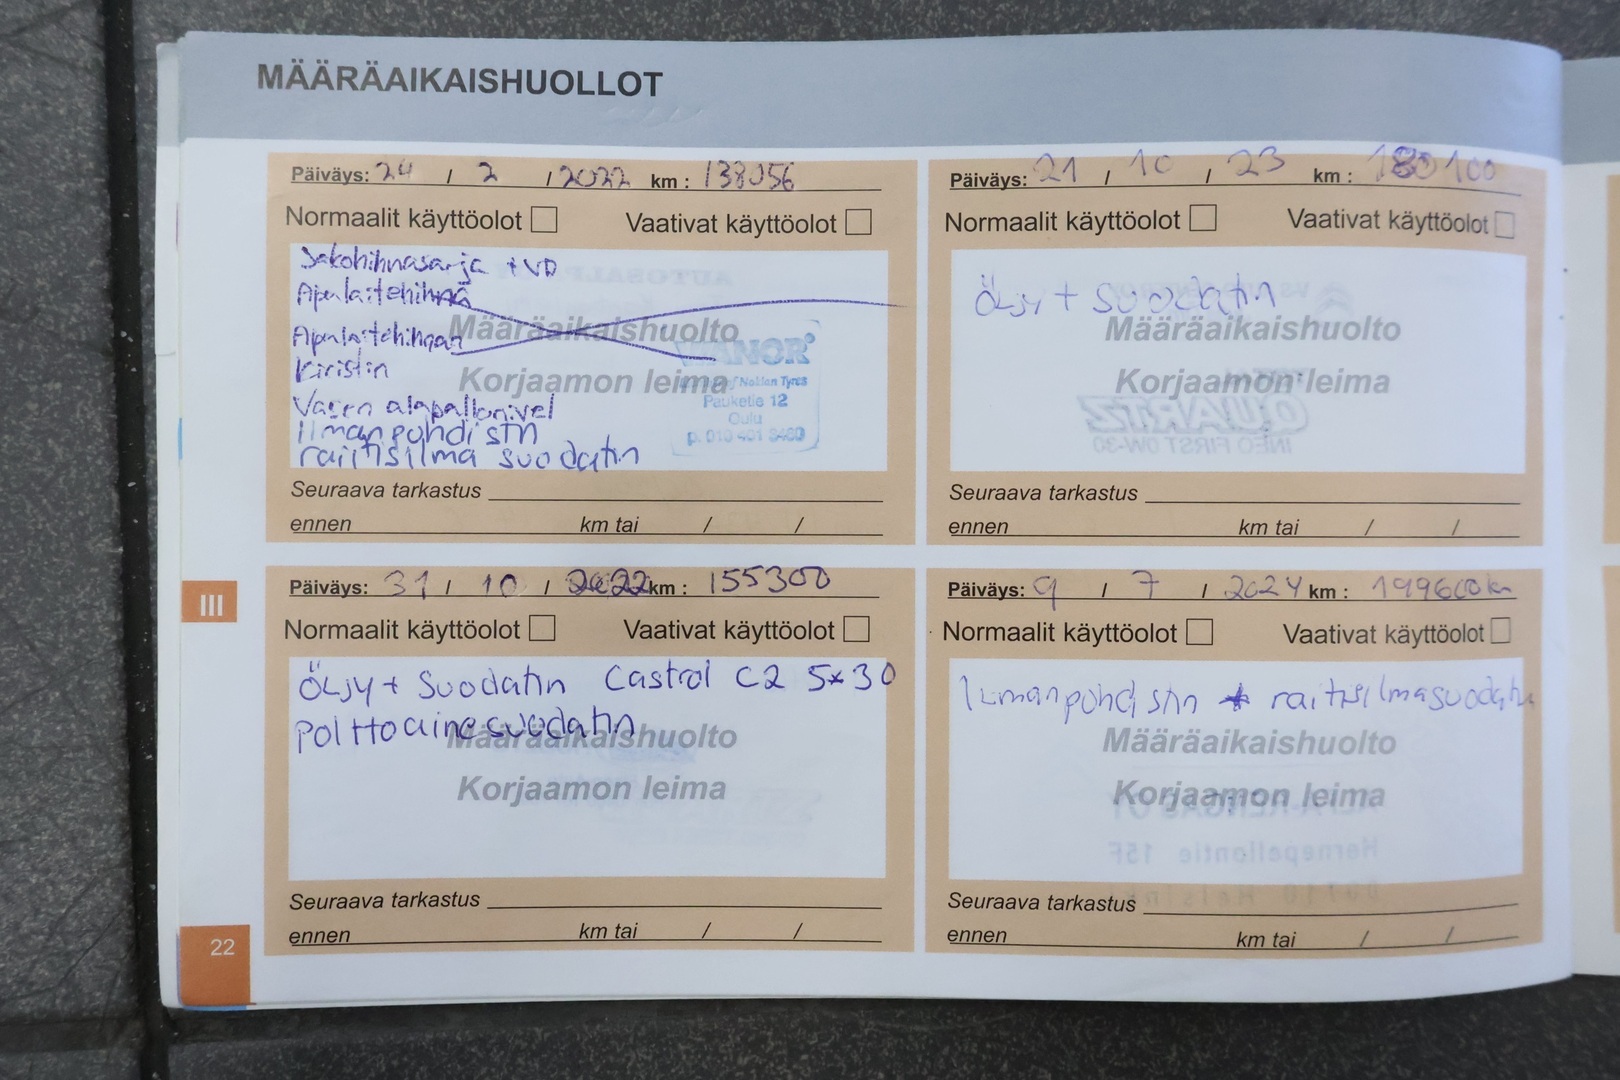 MÄÄRÄAIKAISHUOLLOT
Päiväys: 24 / 2 / 2022 km : 138056
Normaalit käyttöolot Vaativat käyttöolot
Jakohihnasarja + VP
Apulaitehihna
Apulaitehihnan
Kiristin
Vasen alapallonivel
Ilmanpuhdistin
raitisilma suodatin
Määräaikaishuolto
Korjaamon leima
VIANOR
Nokian Tyres
Pauketie 12
Oulu
p. 010 401 3460
Seuraava tarkastus
ennen km tai / /
Päiväys: 21 / 10 / 23 km : 180100
Normaalit käyttöolot Vaativat käyttöolot
Öljy + Suodatin
Määräaikaishuolto
Korjaamon leima
Seuraava tarkastus
ennen km tai / /
III
Päiväys: 31 / 10 / 2022 km : 155300
Normaalit käyttöolot Vaativat käyttöolot
Öljy + Suodatin Castrol C2 5x30
Polttoainesuodatin
Määräaikaishuolto
Korjaamon leima
Seuraava tarkastus
ennen km tai / /
Päiväys: 9 / 7 / 2024 km : 199600km
Normaalit käyttöolot Vaativat käyttöolot
Ilmanpuhdistin + raitisilmasuodatin
Määräaikaishuolto
Korjaamon leima
Seuraava tarkastus
ennen km tai / /
22